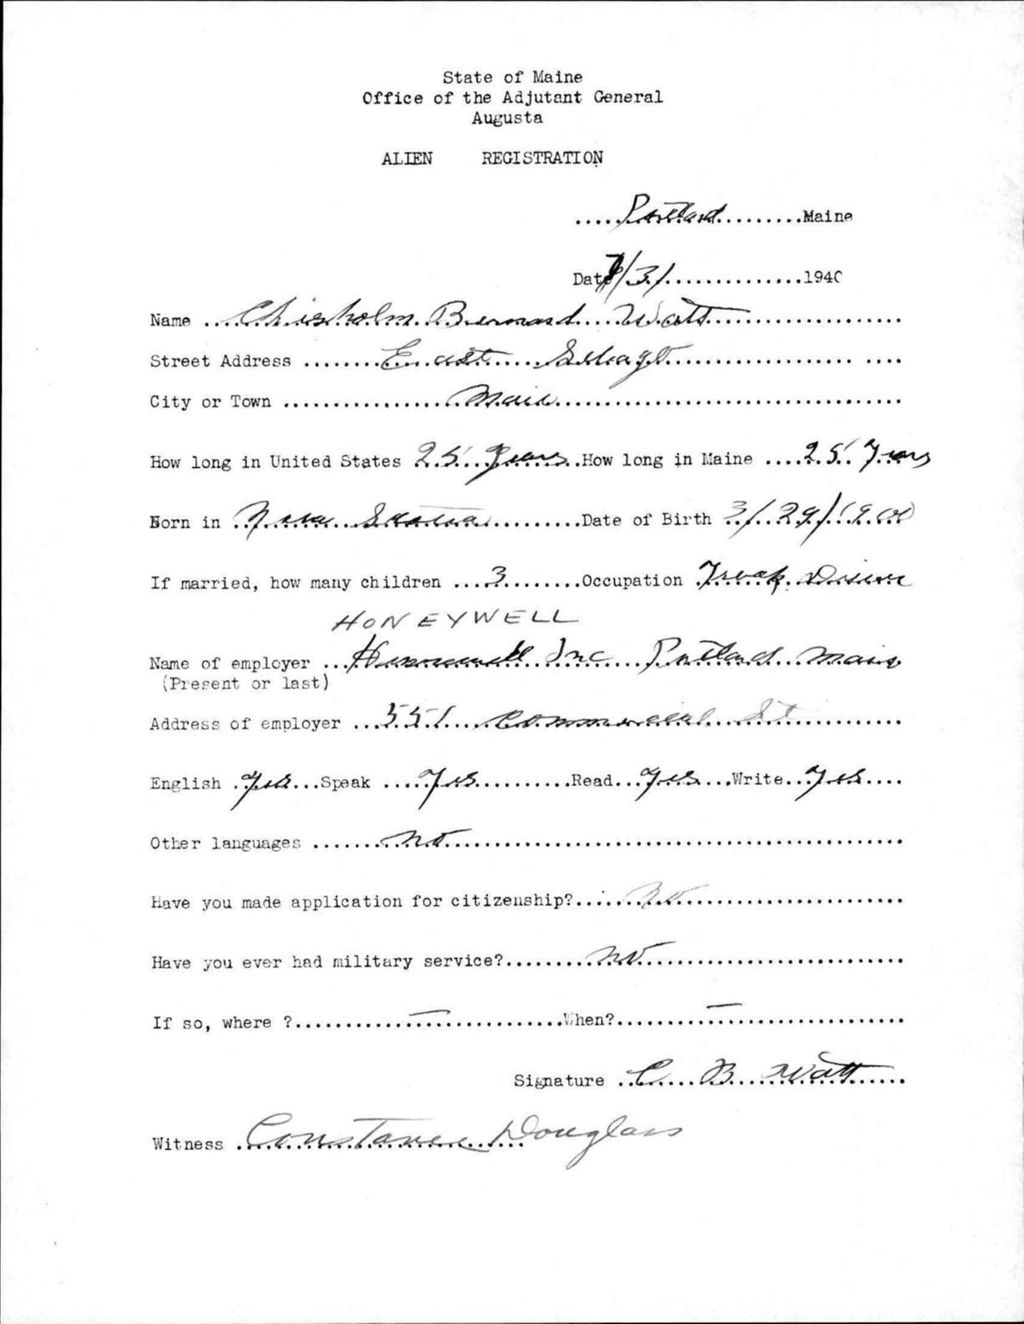 State of Maine
Office of the Adjutant General
Augusta
ALIEN REGISTRATION
.....Portland.........Maine
Date /31...............1940
Name ...Chisholm Bernard Watt...
Street Address ........East Sebago...
City or Town .................Maine...
How long in United States 25 Years..How long in Maine ....25 Years
Born in .Nova Scotia..........Date of Birth 3/29/1900
If married, how many children ...3........Occupation Truck Driver
HONEYWELL
Name of employer ... Inc....Portland Maine
(Present or last)
Address of employer ...551...Commercial St...
English .Yes...Speak ....Yes..........Read...Yes...Write..Yes....
Other languages .......No...
Have you made application for citizenship?.......No...
Have you ever had military service?........No...
If so, where ?..........—.............When?........—........
Signature ..C....B....Watt......
Witness .Constance Douglass